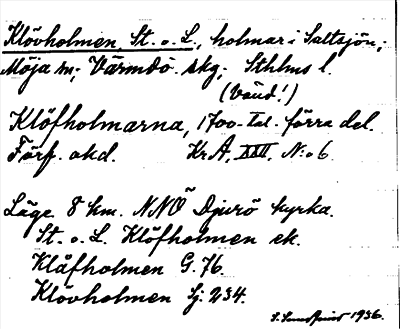 Klövholmen, St. o. L., holmar i Saltsjön,
Möja sn, Värmdö skg, Sthlms l.
(Vänd!)
Klöfholmarna, 1700-tal. förra del.
Förf. okd. Kr A, XXII, N:o 6
Läge 8 km. NNÖ Djurö kyrka.
St. o. L. Klöfholmen ek.
Klåfholmen G. 76.
Klövholmen Sj. 234.
1936.